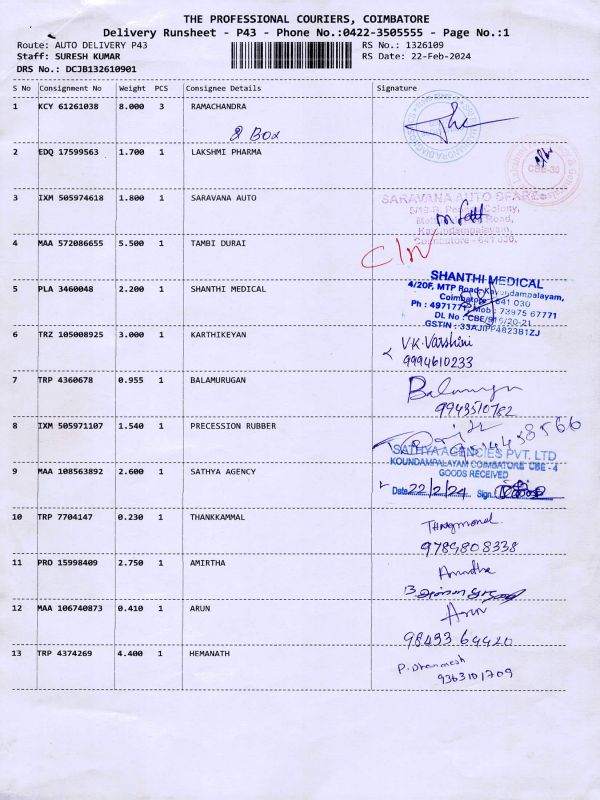 THE PROFESSIONAL COURIERS, COIMBATORE
Delivery Runsheet - P43 - Phone No.:0422-3505555 - Page No.:1
Route: AUTO DELIVERY P43
RS No.: 1326109
Staff: SURESH KUMAR
RS Date: 22-Feb-2024
DRS No.: DCJB132610901
S No Consignment No Weight PCS Consignee Details Signature
1 KCY 61261038 8.000 3 RAMACHANDRA
2 Box
2 EDQ 17599563 1.700 1 LAKSHMI PHARMA
CBE-30
3 IXM 505974618 1.800 1 SARAVANA AUTO
SARAVANA AUTO SPARES
Colony,
Road,
Koundampalayam,
Coimbatore - 641 030.
4 MAA 572086655 5.500 1 TAMBI DURAI
C/N
5 PLA 3460048 2.200 1 SHANTHI MEDICAL
SHANTHI MEDICAL
4/20F, MTP Road, Koundampalayam,
Coimbatore - 641 030
Ph : 4971771, Mob : 73975 67771
DL No : CBE/916/20-21
GSTIN : 33AJIPP4823B1ZJ
6 TRZ 105008925 3.000 1 KARTHIKEYAN
V.K.Varshini
9994610233
7 TRP 4360678 0.955 1 BALAMURUGAN
9943510782
8 IXM 505971107 1.540 1 PRECESSION RUBBER
9 MAA 108563892 2.600 1 SATHYA AGENCY
SATHYA AGENCIES PVT. LTD
KOUNDAMPALAYAM COIMBATORE CBE - 4
GOODS RECEIVED
Date 22/2/24 Sign.
10 TRP 7704147 0.230 1 THANKKAMMAL
9789808338
11 PRO 15998409 2.750 1 AMIRTHA
Amirtha
12 MAA 106740873 0.410 1 ARUN
Arun
98433 64420
13 TRP 4374269 4.400 1 HEMANATH
P. Dhanmesh
9363101709